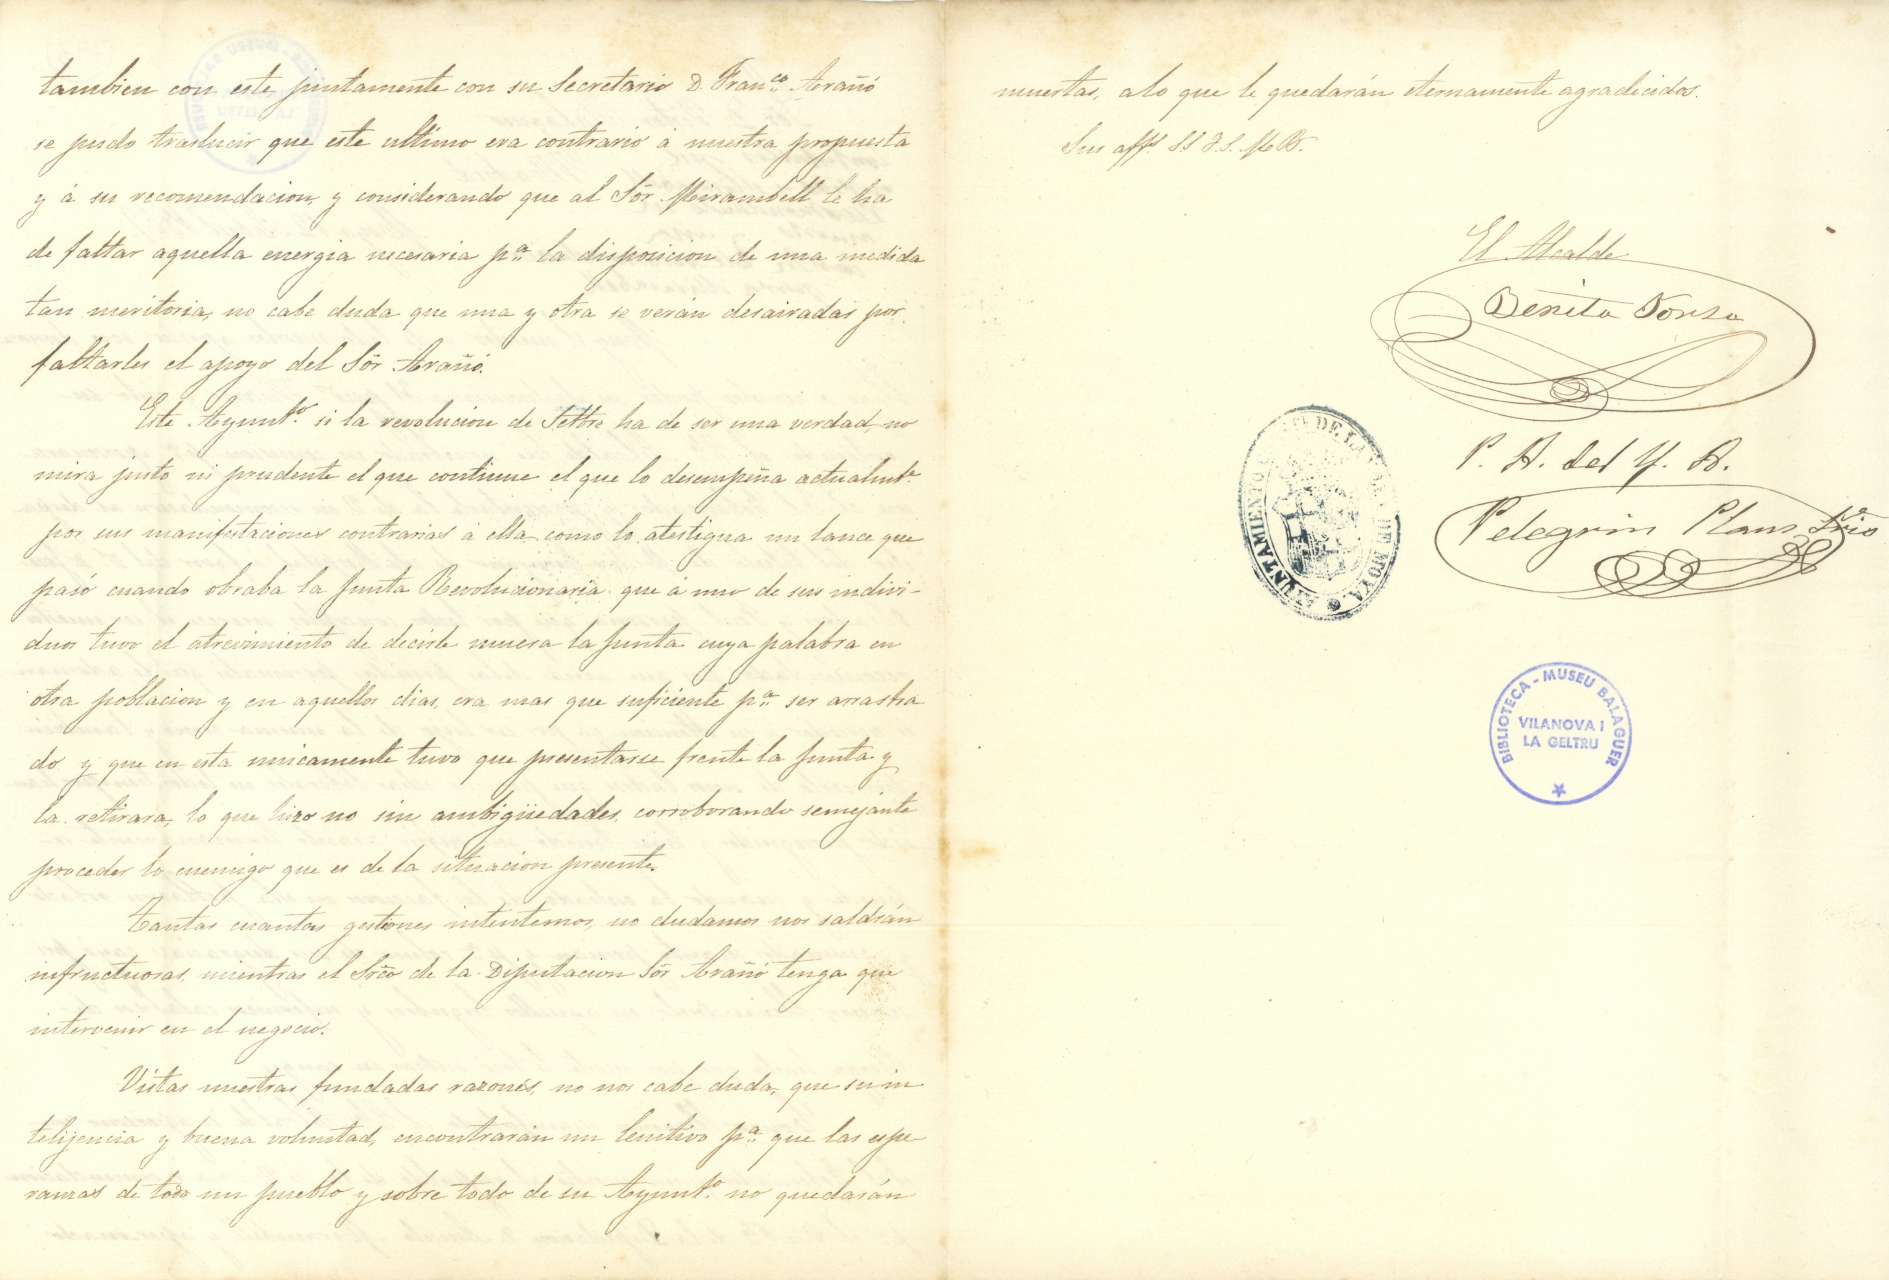 tambien con este, juntamente con su Secretario D. Fran.co Arañó
se pudo traslucir que este ultimo era contrario á nuestra propuesta
y á su recomendacion, y considerando que al Sőr. Mirambell le ha
de faltar aquella energia necesaria p.a la disposicion de una medida
tan meritoria, no cabe duda que una y otra se verán desairadas por
faltarles el apoyo del Sőr Arañó.
Este Ayunt.o si la revolucion de Setbre ha de ser una verdad, no
mira justo ni prudente el que continue el que lo desempeña actualmte
por sus manifestaciones contrarias á ella como lo atestigua un lance que
pasó cuando obraba la Junta Revolucionaria que á uno de sus indivi-
duos tuvo el atrevimiento de decirle muera la Junta cuya palabra en
otra poblacion y en aquellos dias, era mas que suficiente p.a ser arrastra
do y que en esta unicamente tuvo que presentarse frente la Junta y
la retirara, lo que hizo no sin ambigüedades, corroborando semejante
proceder lo enemigo que es de la situacion presente.
Tantas cuantas gestiones intentemos, no dudamos nos saldrán
infructuosas, mientras el Srio de la Diputacion Sőr Arañó tenga que
intervenir en el negocio.
Vistas nuestras fundadas razones, no nos cabe duda, que su in
telijencia y buena voluntad, encontrarán un lenitivo p.a que las espe
ranzas de todo un pueblo y sobre todo de su Ayunt.o no quedarán
muertas, a lo que le quedarán eternamente agradecidos.
Sus aff.s S S Q. S. M. B.
El Alcalde
Benito
P. A. del Y. A.
Pelegrin Plans, Srio
AYUNTAMIENTO DE LA DE MOYA
BIBLIOTECA - MUSEU BALAGUER
VILANOVA I
LA GELTRU